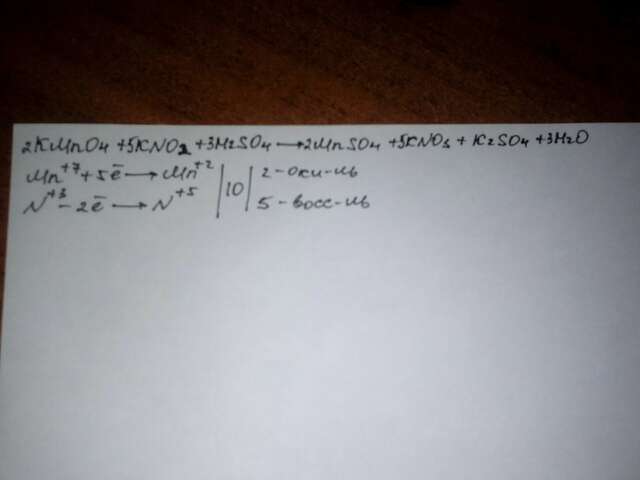 2KMnO4 +5KNO2 +3H2SO4 →2MnSO4 +5KNO3 + K2SO4 +3H2O
Mn+7 + 5ē → Mn+2 | 10 | 2 - оки-ль
N+3 - 2ē → N+5 | 5 - восс-ль